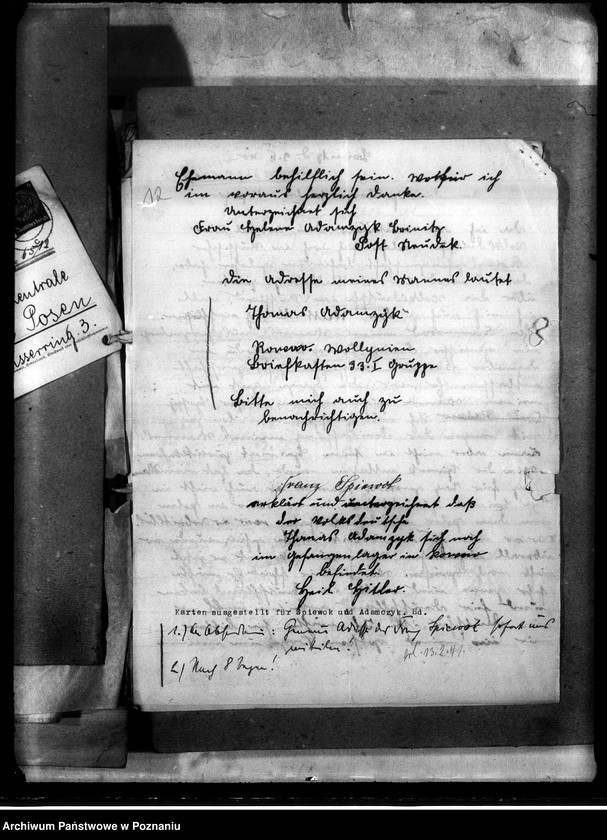 12
Ehemann behilflich sein. Wofür ich
im voraus herzlich danke.
Unterzeichnet sich
Frau Helene Adamzyk Brinitz
Post Neudek.
Die Adresse meines Mannes lautet
Thomas Adamzyk
Rowar. Wollynien
Briefkasten 33. I Gruppe
Bitte mich auch zu
benachrichtigen.
8
Franz Spiewok
erklärt und unterzeichnet daß
der Volksdeutsche
Thomas Adamzyk sich noch
im Gefangenlager in Rowar
befindet.
Heil Hitler.
Karten ausgestellt für Spiewok und Adamczyk. Hd.
1.) Genaue Adresse des Franz Spiewok sofort uns
mitteilen!
13.2.41.
2.) Nach 8 Tagen!
entrale
Posen
sserring. 3.
Archiwum Państwowe w Poznaniu